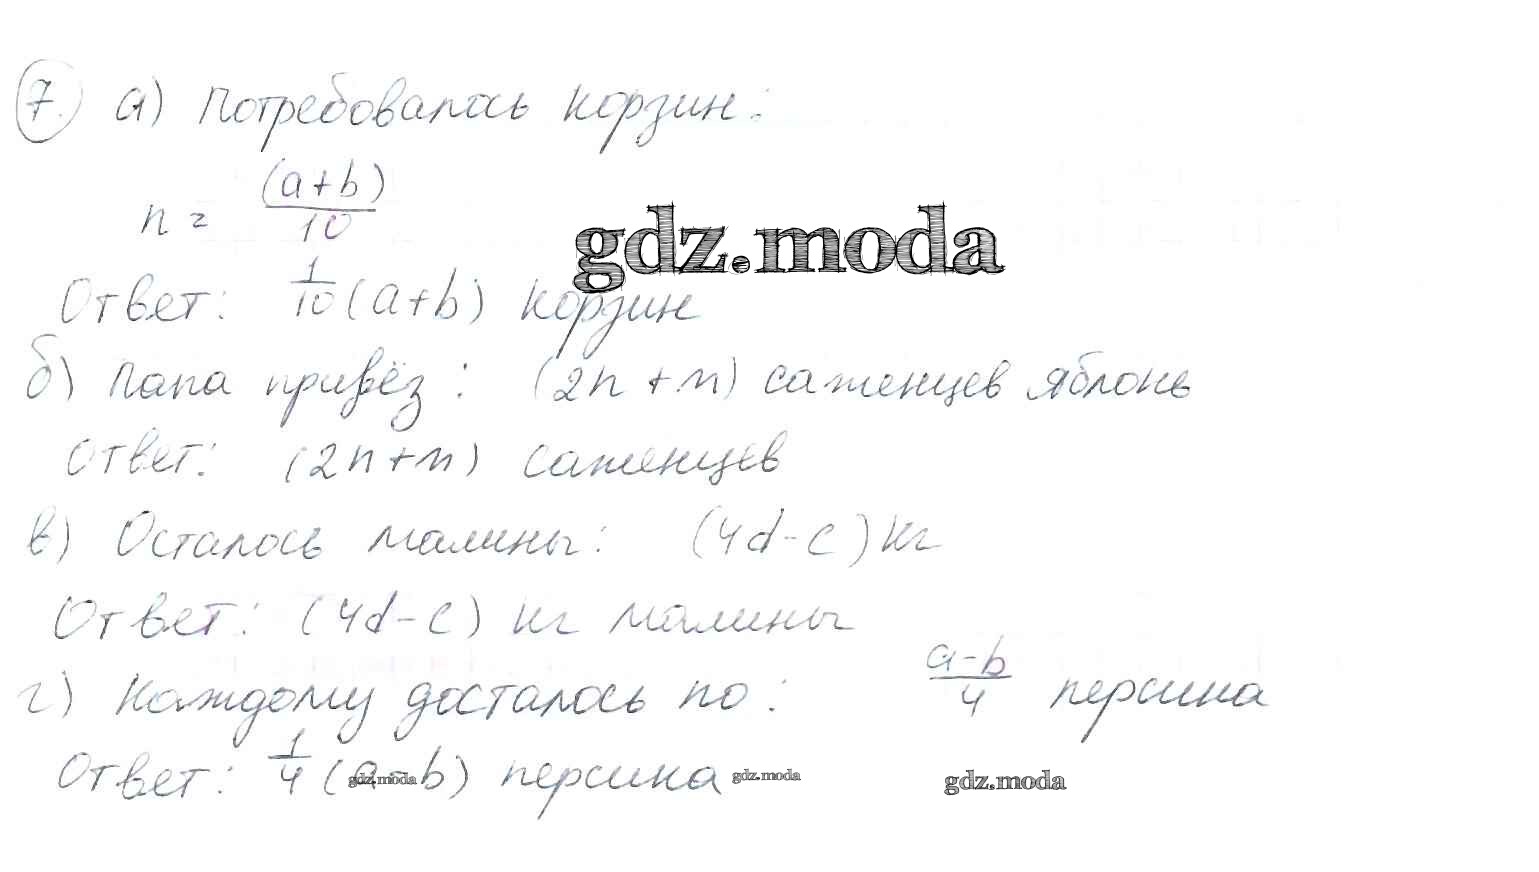 7. а) Потребовалось корзин:
n = (a+b)/10
gdz.moda
Ответ: 1/10 (a+b) корзин
б) Папа привёз: (2n+m) саженцев яблонь
Ответ: (2n+m) саженцев
в) Осталось малины: (4d-c) кг
Ответ: (4d-c) кг малины
г) Каждому досталось по: (a-b)/4 персика
Ответ: 1/4 (a-b) персика
gdz.moda gdz.moda gdz.moda